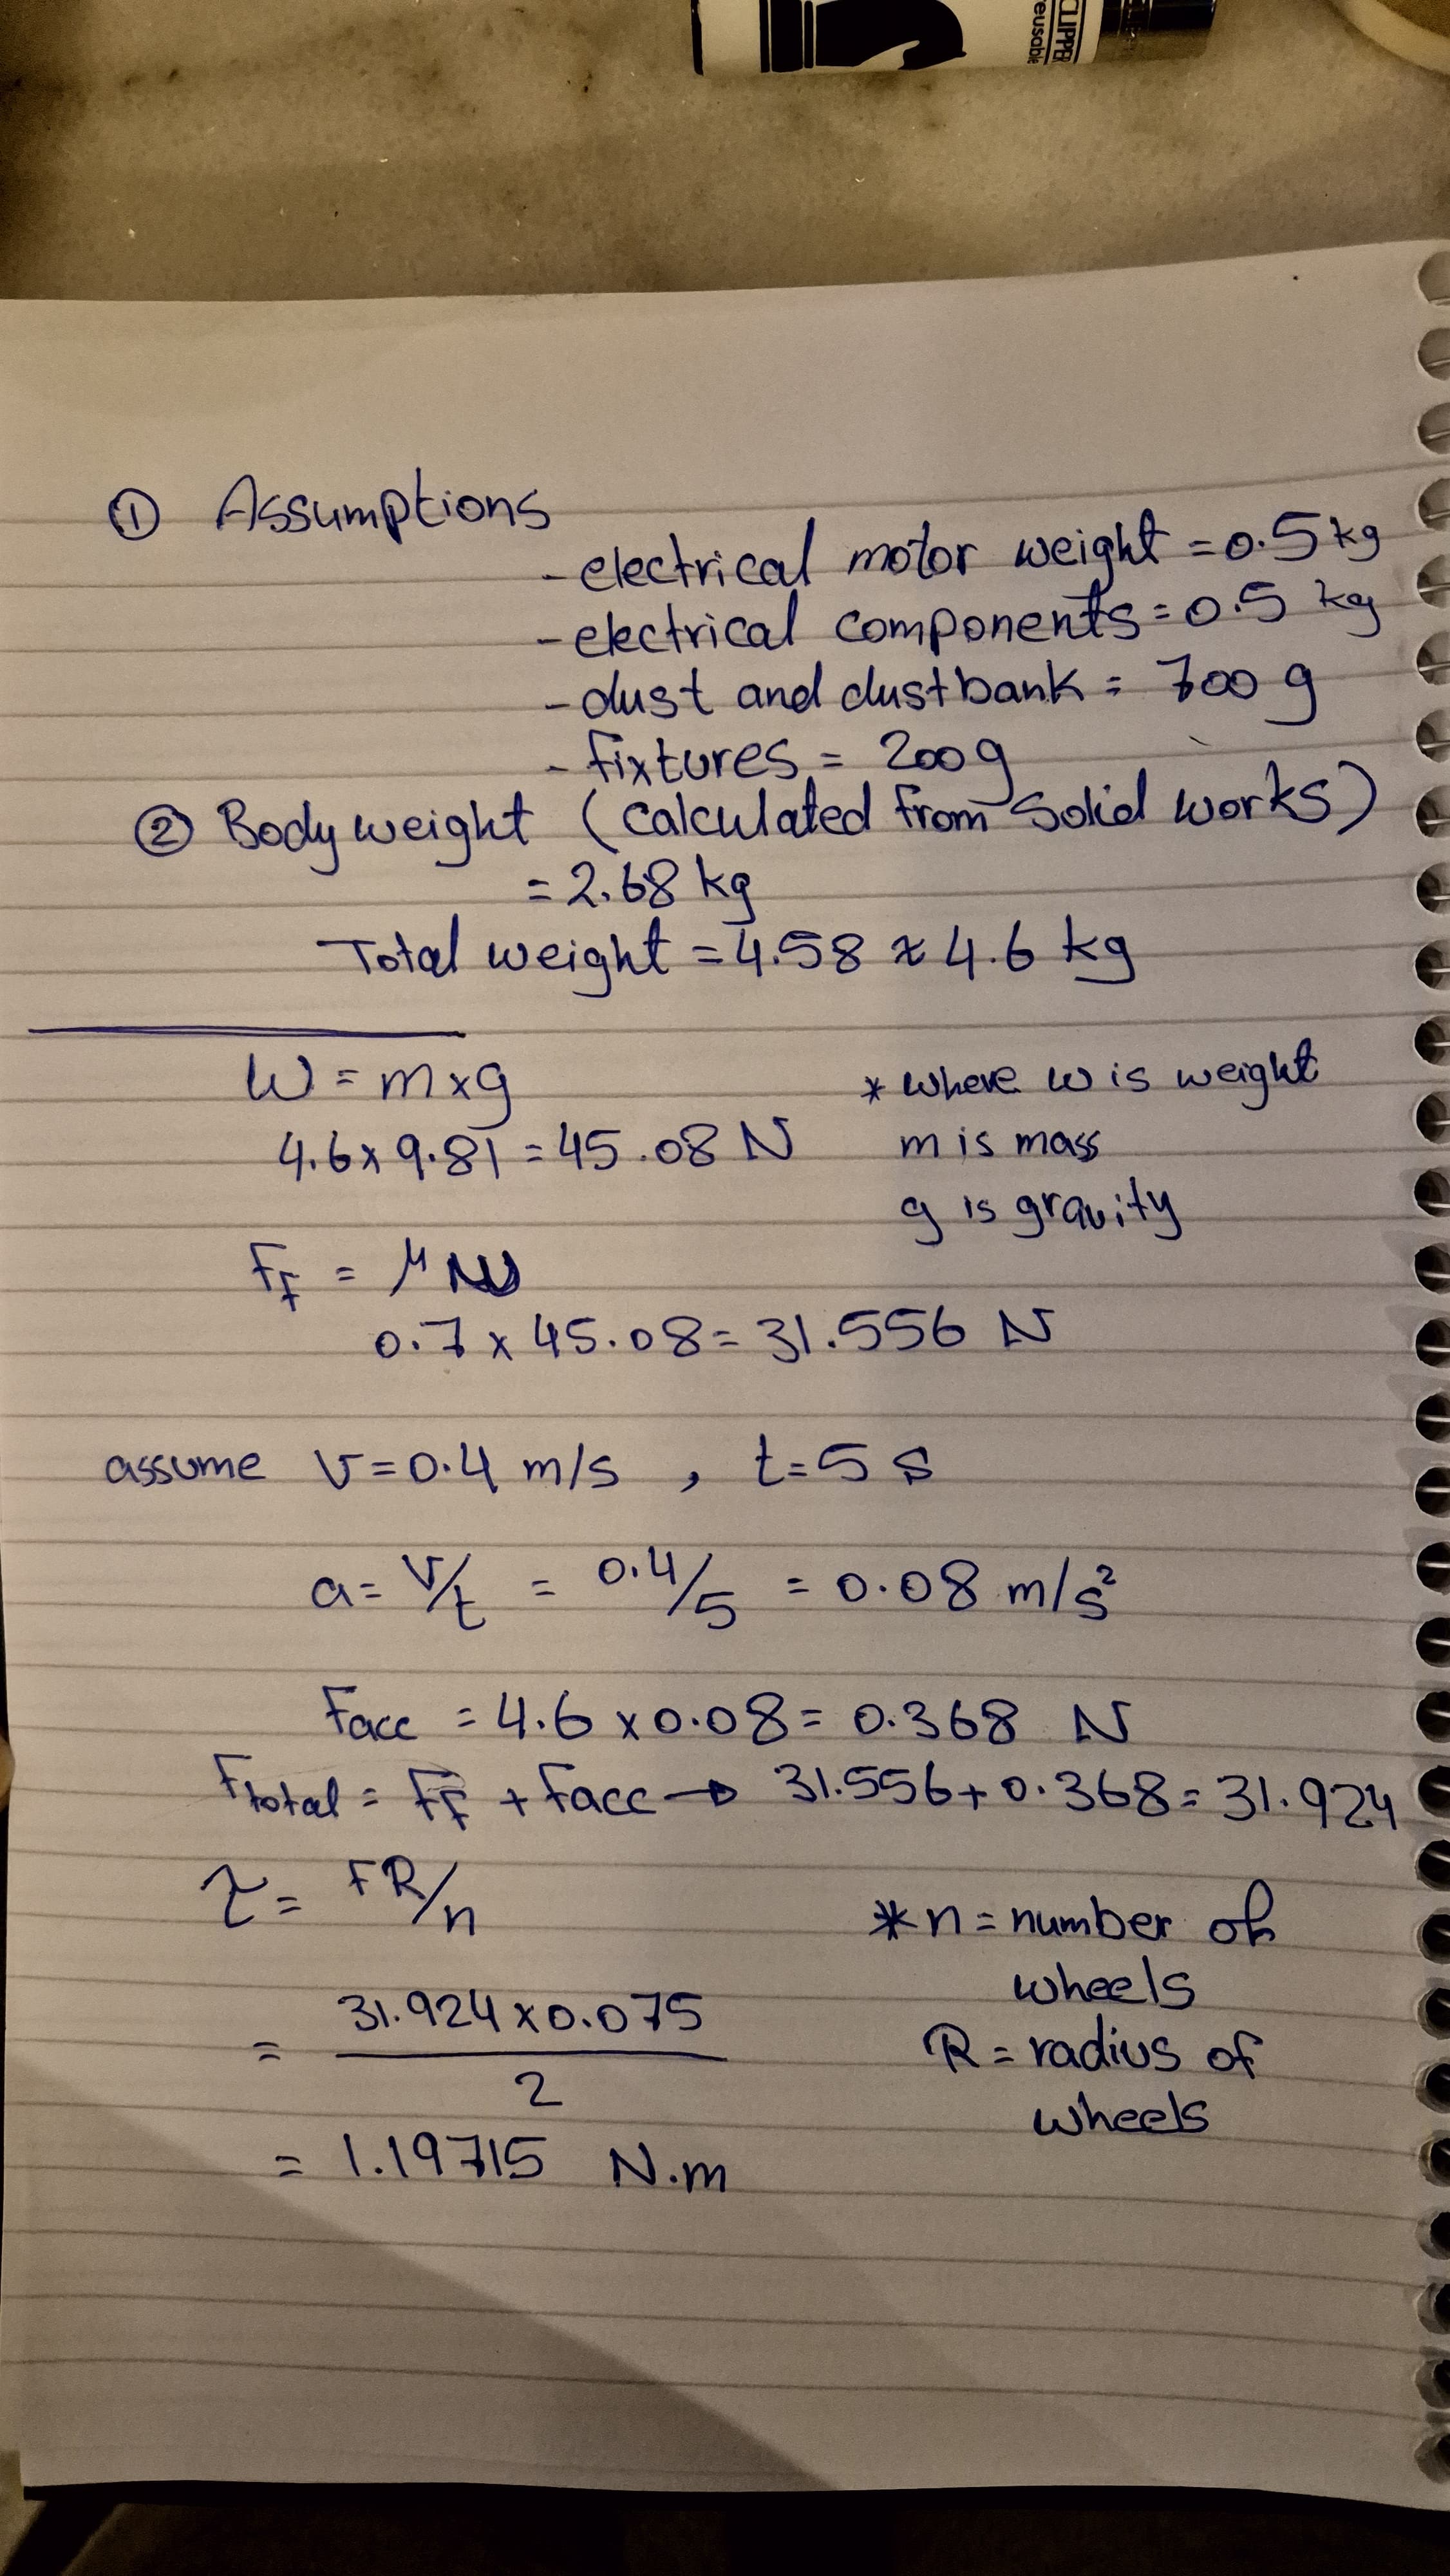 CLIPPER
reusable
① Assumptions
- electrical motor weight = 0.5 kg
- electrical components = 0.5 kg
- dust and dustbank = 700 g
- fixtures = 200g
② Body weight (calculated from Solid works)
= 2.68 kg
Total weight = 4.58 ≈ 4.6 kg
W = m×g
* where w is weight
4.6 × 9.81 = 45.08 N
m is mass
g is gravity
Ff = μ N
0.7 × 45.08 = 31.556 N
assume v = 0.4 m/s , t = 5 s
a = v/t = 0.4/5 = 0.08 m/s²
Facc = 4.6 × 0.08 = 0.368 N
Ftotal = Ff + Facc → 31.556 + 0.368 = 31.924
τ = FR/n
* n = number of
wheels
= 31.924 × 0.075 / 2
R = radius of
wheels
= 1.19715 N.m